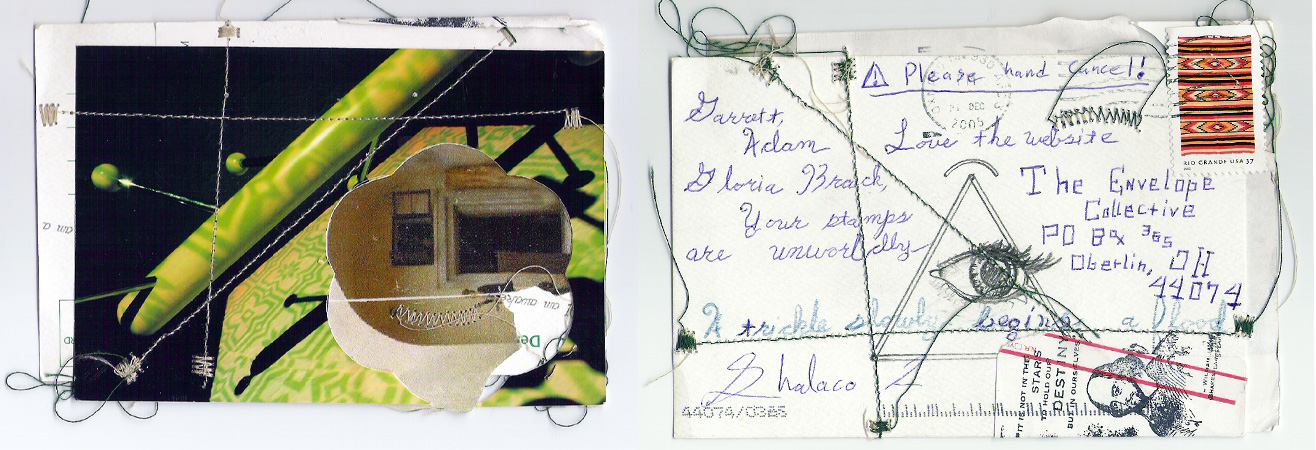 I am a
I am awake
De
Please hand cancel!
DEC
2005
Garrett,
Adam
Love the website
Your stamps
are unworldly
RIO GRANDE USA 37
The Envelope
Collective
PO Box 385
Oberlin, OH
44074
A trickle slowly begins a flood
Shalaco
44074/0385
IT IS NOT IN THE
STARS
TO HOLD OUR
DESTINY
BUT IN OURSELVES